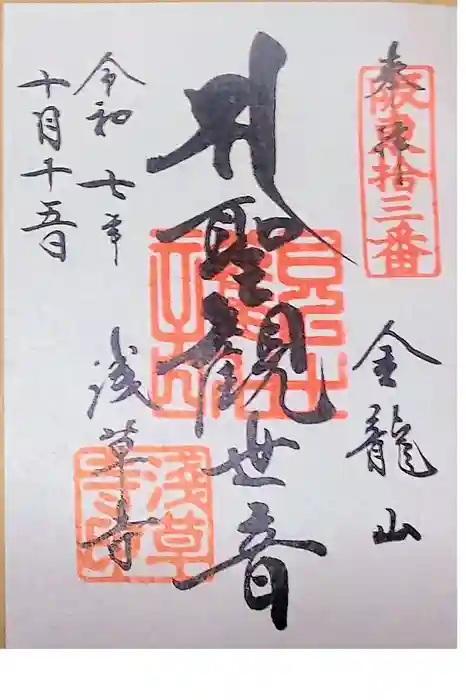 奉拝
阪東拾三番
金龍山
聖観世音
令和七年
十月十五日
浅草寺
淺草